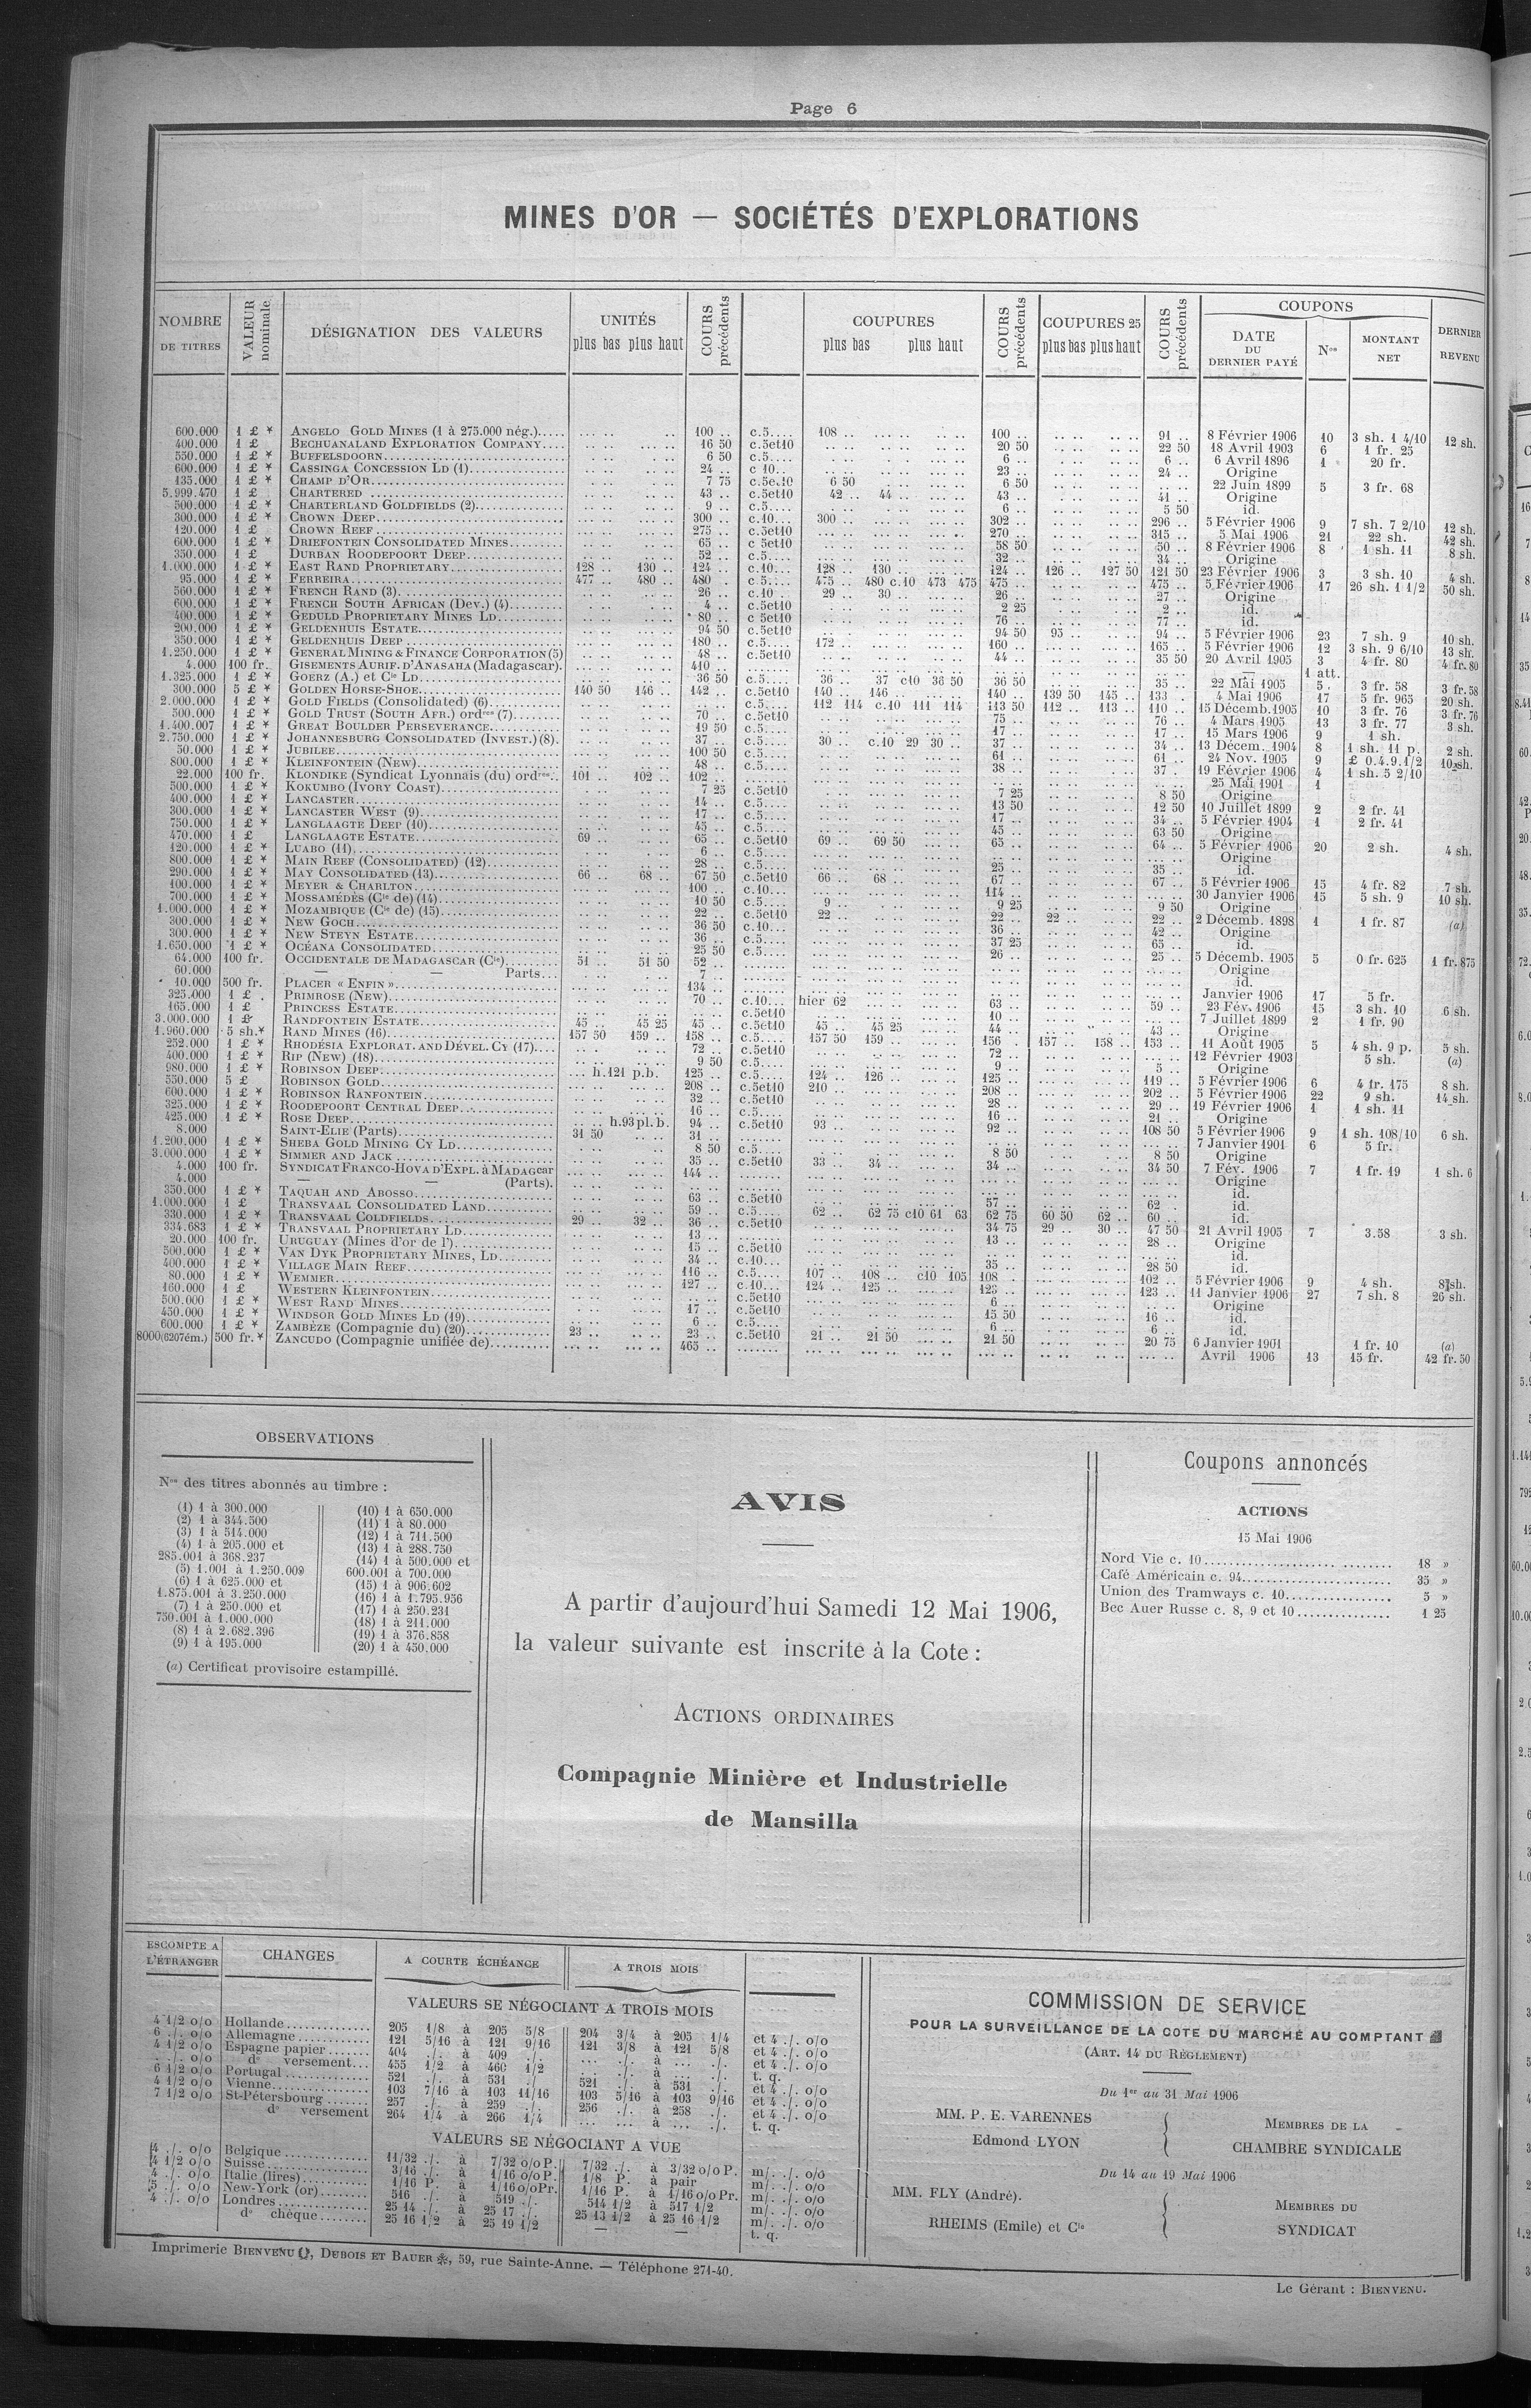 Page 6
MINES D'OR — SOCIÉTÉS D'EXPLORATIONS
NOMBRE DE TITRES | VALEUR nominale | DÉSIGNATION DES VALEURS | UNITÉS plus bas plus haut | COURS précédents | COUPURES plus bas plus haut | COURS précédents | COUPURES 25 plus bas plus haut | COURS précédents | COUPONS DATE DU DERNIER PAYÉ | Nos | MONTANT NET | DERNIER REVENU
600.000 1 £ * ANGELO GOLD MINES (1 à 275.000 nég.) 100 .. c.5 108 .. 100 .. 91 .. 8 Février 1906 10 3 sh. 1 4/10 12 sh.
400.000 1 £ BECHUANALAND EXPLORATION COMPANY 16 50 c.5et10 20 50 22 50 18 Avril 1903 6 1 fr. 25
550.000 1 £ * BUFFELSDOORN 6 50 c.5 6 .. 6 .. 6 Avril 1896 1 20 fr.
600.000 1 £ * CASSINGA CONCESSION LD (1) 24 .. c 10 23 .. 24 .. Origine
135.000 1 £ * CHAMP D'OR 7 75 c.5e.10 6 50 6 50 22 Juin 1899 5 3 fr. 68
5.999.470 1 £ CHARTERED 43 .. c.5et10 42 .. 44 .. 43 .. 41 .. Origine
500.000 1 £ * CHARTERLAND GOLDFIELDS (2) 9 .. c.5 6 .. 5 50 id.
300.000 1 £ * CROWN DEEP 300 .. c.10 300 .. 302 .. 296 .. 5 Février 1906 9 7 sh. 7 2/10 12 sh.
120.000 1 £ CROWN REEF 275 .. c.5et10 270 .. 315 .. 5 Mai 1906 21 22 sh. 42 sh.
600.000 1 £ * DRIEFONTEIN CONSOLIDATED MINES 65 .. c 5et10 58 50 50 .. 8 Février 1906 8 1 sh. 11 8 sh.
350.000 1 £ DURBAN ROODEPOORT DEEP 52 .. c.5 32 .. 34 .. Origine
1.000.000 1 £ * EAST RAND PROPRIETARY 128 .. 130 .. 124 .. c.10 128 .. 130 .. 124 .. 126 .. 127 50 121 50 23 Février 1906 3 3 sh. 10 4 sh.
95.000 1 £ * FERREIRA 477 .. 480 .. 480 .. c.5 475 .. 480 c.10 473 475 475 .. 475 .. 5 Février 1906 17 26 sh. 1 1/2 50 sh.
560.000 1 £ * FRENCH RAND (3) 26 .. c.10 29 .. 30 .. 26 .. 27 .. Origine
600.000 1 £ * FRENCH SOUTH AFRICAN (Dev.) (4) 4 .. c.5et10 2 25 2 .. id.
400.000 1 £ * GEDULD PROPRIETARY MINES LD 80 .. c 5et10 76 .. 77 .. id.
200.000 1 £ * GELDENHUIS ESTATE 94 50 c.5et10 94 50 95 94 .. 5 Février 1906 23 7 sh. 9 10 sh.
350.000 1 £ * GELDENHUIS DEEP 180 .. c.5 172 .. 160 .. 165 .. 5 Février 1906 12 3 sh. 9 6/10 13 sh.
1.250.000 1 £ * GENERAL MINING & FINANCE CORPORATION (5) 48 .. c.5et10 44 .. 35 50 20 Avril 1905 3 4 fr. 80 4 fr. 80
4.000 100 fr. GISEMENTS AURIF. D'ANASAHA (Madagascar). 410 .. — 1 att.
1.325.000 1 £ * GOERZ (A.) et Cie LD 36 50 c.5 36 .. 37 c10 36 50 36 50 35 .. 22 Mai 1905 5 3 fr. 58 3 fr. 58
300.000 5 £ * GOLDEN HORSE-SHOE 140 50 146 .. 142 .. c.5et10 140 .. 146 .. 140 .. 139 50 145 .. 133 .. 4 Mai 1906 17 5 fr. 965 20 sh.
2.000.000 1 £ * GOLD FIELDS (Consolidated) (6) c.5 112 114 c.10 111 114 113 50 112 .. 113 .. 110 .. 15 Décemb. 1905 10 3 fr. 76 3 fr. 76
500.000 1 £ * GOLD TRUST (SOUTH AFR.) ordres (7) 70 .. c.5et10 75 .. 76 .. 4 Mars 1905 13 3 fr. 77 3 sh.
1.400.007 1 £ * GREAT BOULDER PERSEVERANCE 19 50 c.5 17 .. 17 .. 15 Mars 1906 9 1 sh.
2.750.000 1 £ * JOHANNESBURG CONSOLIDATED (INVEST.) (8). 37 .. c.5 30 .. c.10 29 30 .. 37 .. 34 .. 13 Décem. 1904 8 1 sh. 11 p. 2 sh.
50.000 1 £ * JUBILEE 100 50 c.5 61 .. 61 .. 24 Nov. 1905 9 £ 0.4.9.1/2 10 sh.
800.000 1 £ * KLEINFONTEIN (NEW) 48 .. c.5 38 .. 37 . 19 Février 1906 4 1 sh. 5 2/10
22.000 100 fr. KLONDIKE (Syndicat Lyonnais (du) ordres. 101 .. 102 .. 102 .. 25 Mai 1901 1
500.000 1 £ * KOKUMBO (IVORY COAST) 7 25 c.5et10 7 25 8 50 Origine
400.000 1 £ * LANCASTER 14 .. c.5 13 50 12 50 10 Juillet 1899 2 2 fr. 41
300.000 1 £ * LANCASTER WEST (9) 17 .. c.5 17 .. 34 .. 5 Février 1904 1 2 fr. 41
750.000 1 £ * LANGLAAGTE DEEP (10) 45 .. c.5 45 .. 63 50 Origine
470.000 1 £ LANGLAAGTE ESTATE 69 .. 65 .. c.5et10 69 .. 69 50 65 .. 64 .. 5 Février 1906 20 2 sh. 4 sh.
120.000 1 £ * LUABO (11) 6 .. c.5 Origine
800.000 1 £ * MAIN REEF (CONSOLIDATED) (12) 28 .. c.5 25 .. 35 .. id.
290.000 1 £ * MAY CONSOLIDATED (13) 66 .. 68 .. 67 50 c.5et10 66 .. 68 .. 67 .. 67 .. 5 Février 1906 15 4 fr. 82 7 sh.
100.000 1 £ * MEYER & CHARLTON 100 .. c.10 114 .. 30 Janvier 1906 15 5 sh. 9 10 sh.
700.000 1 £ * MOSSAMÉDÈS (Cie de) (14) 10 50 c.5 9 .. 9 25 9 50 Origine
1.000.000 1 £ * MOZAMBIQUE (Cie de) (15) 22 .. c.5et10 22 .. 22 .. 22 .. 22 .. 2 Décemb. 1898 1 1 fr. 87 (a)
300.000 1 £ * NEW GOCH 36 50 c.10 36 .. 42 .. Origine
300.000 1 £ * NEW STEYN ESTATE 36 .. c.5 37 25 65 .. id.
1.650.000 1 £ * OCÉANA CONSOLIDATED 25 50 c.5 26 .. 25 .. 5 Décemb. 1905 5 0 fr. 625 1 fr. 875
64.000 100 fr. OCCIDENTALE DE MADAGASCAR (Cie) 51 .. 51 50 52 .. Origine
60.000 — — Parts 7 .. id.
10.000 500 fr. PLACER « ENFIN » 134 .. Janvier 1906 17 5 fr.
325.000 1 £ PRIMROSE (NEW) 70 .. c.10 hier 62 63 .. 59 .. 23 Fév. 1906 15 3 sh. 10 6 sh.
165.000 1 £ PRINCESS ESTATE c.5et10 10 .. 7 Juillet 1899 2 1 fr. 90
3.000.000 1 £ RANDFONTEIN ESTATE 45 .. 45 25 45 .. c.5et10 45 .. 45 25 44 .. 43 .. Origine
1.960.000 5 sh.* RAND MINES (16) 157 50 159 .. 158 .. c.5 157 50 159 .. 156 . 157 .. 158 .. 153 .. 11 Août 1905 5 4 sh. 9 p. 5 sh.
252.000 1 £ * RHODÉSIA EXPLORAT. AND DÉVEL. CY (17) 72 .. c.5et10 72 .. 12 Février 1903 5 sh. (a)
400.000 1 £ * RIP (NEW) (18) 9 50 c.5 9 .. 5 .. Origine
980.000 1 £ * ROBINSON DEEP h.121 p.b. 125 .. c.5 124 .. 126 .. 125 .. 119 .. 5 Février 1906 6 4 fr. 175 8 sh.
550.000 5 £ ROBINSON GOLD 208 .. c.5et10 210 .. 208 .. 202 .. 5 Février 1906 22 9 sh. 14 sh.
600.000 1 £ * ROBINSON RANFONTEIN 32 .. c.5et10 28 .. 29 .. 19 Février 1906 1 1 sh. 11
325.000 1 £ * ROODEPOORT CENTRAL DEEP 16 .. c.5 16 .. 21 .. Origine
425.000 1 £ * ROSE DEEP h.93 pl.b. 94 .. c.5et10 93 .. 92 .. 108 50 5 Février 1906 9 1 sh. 108/10 6 sh.
8.000 SAINT-ELIE (Parts) 31 50 31 .. 7 Janvier 1901 6 5 fr.
1.200.000 1 £ * SHEBA GOLD MINING CY LD 8 50 c.5 8 50 8 50 Origine
3.000.000 1 £ * SIMMER AND JACK 35 .. c.5et10 33 .. 34 .. 34 .. 34 50 7 Fév. 1906 7 1 fr. 19 1 sh. 6
4.000 100 fr. SYNDICAT FRANCO-HOVA D'EXPL. à MADAGcar 144 .. Origine
4.000 — — (Parts). id.
350.000 1 £ * TAQUAH AND ABOSSO 63 .. c.5et10 57 .. 62 . id.
1.000.000 1 £ TRANSVAAL CONSOLIDATED LAND 59 .. c.5 62 .. 62 75 c10 61 63 62 75 60 50 62 .. 60 .. id.
330.000 1 £ * TRANSVAAL COLDFIELDS 29 .. 32 .. 36 .. c.5et10 34 75 29 .. 30 .. 47 50 21 Avril 1905 7 3.58 3 sh.
334.683 1 £ * TRANSVAAL PROPRIETARY LD 13 .. 13 .. 28 .. Origine
20.000 100 fr. URUGUAY (Mines d'or de l') 15 .. c.5et10 id.
500.000 1 £ * VAN DYK PROPRIETARY MINES, LD 34 .. c.10 35 .. 28 50 id.
400.000 1 £ * VILLAGE MAIN REEF 116 .. c.5 107 .. 108 .. c10 105 108 .. 102 .. 5 Février 1906 9 4 sh. 8 sh.
80.000 1 £ * WEMMER 127 .. c.10 124 .. 125 .. 125 .. 123 .. 11 Janvier 1906 27 7 sh. 8 26 sh.
160.000 1 £ WESTERN KLEINFONTEIN c.5et10 6 .. Origine
500.000 1 £ * WEST RAND MINES 17 .. c.5et10 15 50 16 .. id.
450.000 1 £ * WINDSOR GOLD MINES LD (19) 6 .. c.5 6 .. 6 .. id.
600.000 1 £ * ZAMBÈZE (Compagnie du) (20) 23 .. 23 .. c.5et10 21 .. 21 50 21 50 20 75 6 Janvier 1901 1 fr. 10 (a)
8000(6207ém.) 500 fr.* ZANCUDO (Compagnie unifiée de) 465 .. Avril 1906 13 15 fr. 42 fr. 50
OBSERVATIONS
Nos des titres abonnés au timbre :
(1) 1 à 300.000
(2) 1 à 344.500
(3) 1 à 514.000
(4) 1 à 205.000 et
285.001 à 368.237
(5) 1.001 à 1.250.009
(6) 1 à 625.000 et
1.875.001 à 3.250.000
(7) 1 à 250.000 et
750.001 à 1.000.000
(8) 1 à 2.682.396
(9) 1 à 195.000
(10) 1 à 650.000
(11) 1 à 80.000
(12) 1 à 711.500
(13) 1 à 288.750
(14) 1 à 500.000 et
600.001 à 700.000
(15) 1 à 906.602
(16) 1 à 1.795.956
(17) 1 à 250.231
(18) 1 à 211.000
(19) 1 à 376.858
(20) 1 à 450.000
(a) Certificat provisoire estampillé.
AVIS
A partir d'aujourd'hui Samedi 12 Mai 1906,
la valeur suivante est inscrite à la Cote :
ACTIONS ORDINAIRES
Compagnie Minière et Industrielle
de Mansilla
Coupons annoncés
ACTIONS
15 Mai 1906
Nord Vie c. 10 18 »
Café Américain c. 94 35 »
Union des Tramways c. 10 5 »
Bec Auer Russe c. 8, 9 et 10 1 25
ESCOMPTE A L'ÉTRANGER | CHANGES | A COURTE ÉCHÉANCE | A TROIS MOIS
VALEURS SE NÉGOCIANT A TROIS MOIS
4 1/2 o/o Hollande 205 1/8 à 205 5/8 204 3/4 à 205 1/4 et 4 ./. o/o
6 ./. o/o Allemagne 121 5/16 à 121 9/16 121 3/8 à 121 5/8 et 4 ./. o/o
4 1/2 o/o Espagne papier 404 ./. à 409 ./. ... ./. à ... ./. et 4 ./. o/o
. ./. o/o do versement 455 1/2 à 460 1/2 ... ./. à ... ./. t. q.
6 1/2 o/o Portugal 521 ./. à 531 ./. 521 ./. à 531 ./. et 4 ./. o/o
4 1/2 o/o Vienne 103 7/16 à 103 11/16 103 5/16 à 103 9/16 et 4 ./. o/o
7 1/2 o/o St-Pétersbourg 257 ./. à 259 ./. 256 ./. à 258 ./. et 4 ./. o/o
do versement 264 1/4 à 266 1/4 ... ... à ... ./. t. q.
VALEURS SE NÉGOCIANT A VUE
4 ./. o/o Belgique 11/32 ./. à 7/32 o/o P. 7/32 ./. à 3/32 o/o P. m/. ./. o/o
4 1/2 o/o Suisse 3/16 ./. à 1/16 o/o P. 1/8 P. à pair m/. ./. o/o
4 ./. o/o Italie (lires) 1/16 P. à 1/16 o/o Pr. 1/16 P. à 1/16 o/o Pr. m/. ./. o/o
5 ./. o/o New-York (or) 516 ./. à 519 ./. 514 1/2 à 517 1/2 m/. ./. o/o
4 ./. o/o Londres 25 14 ./. à 25 17 ./. 25 13 1/2 à 25 16 1/2 m/. ./. o/o
do chèque 25 16 1/2 à 25 19 1/2 — — t. q.
COMMISSION DE SERVICE
POUR LA SURVEILLANCE DE LA COTE DU MARCHÉ AU COMPTANT
(ART. 14 DU RÈGLEMENT)
Du 1er au 31 Mai 1906
MM. P. E. VARENNES
Edmond LYON
MEMBRES DE LA
CHAMBRE SYNDICALE
Du 14 au 19 Mai 1906
MM. FLY (André).
RHEIMS (Emile) et Cie
MEMBRES DU
SYNDICAT
Imprimerie BIENVENU, DUBOIS ET BAUER, 59, rue Sainte-Anne. — Téléphone 271-40.
Le Gérant : BIENVENU.